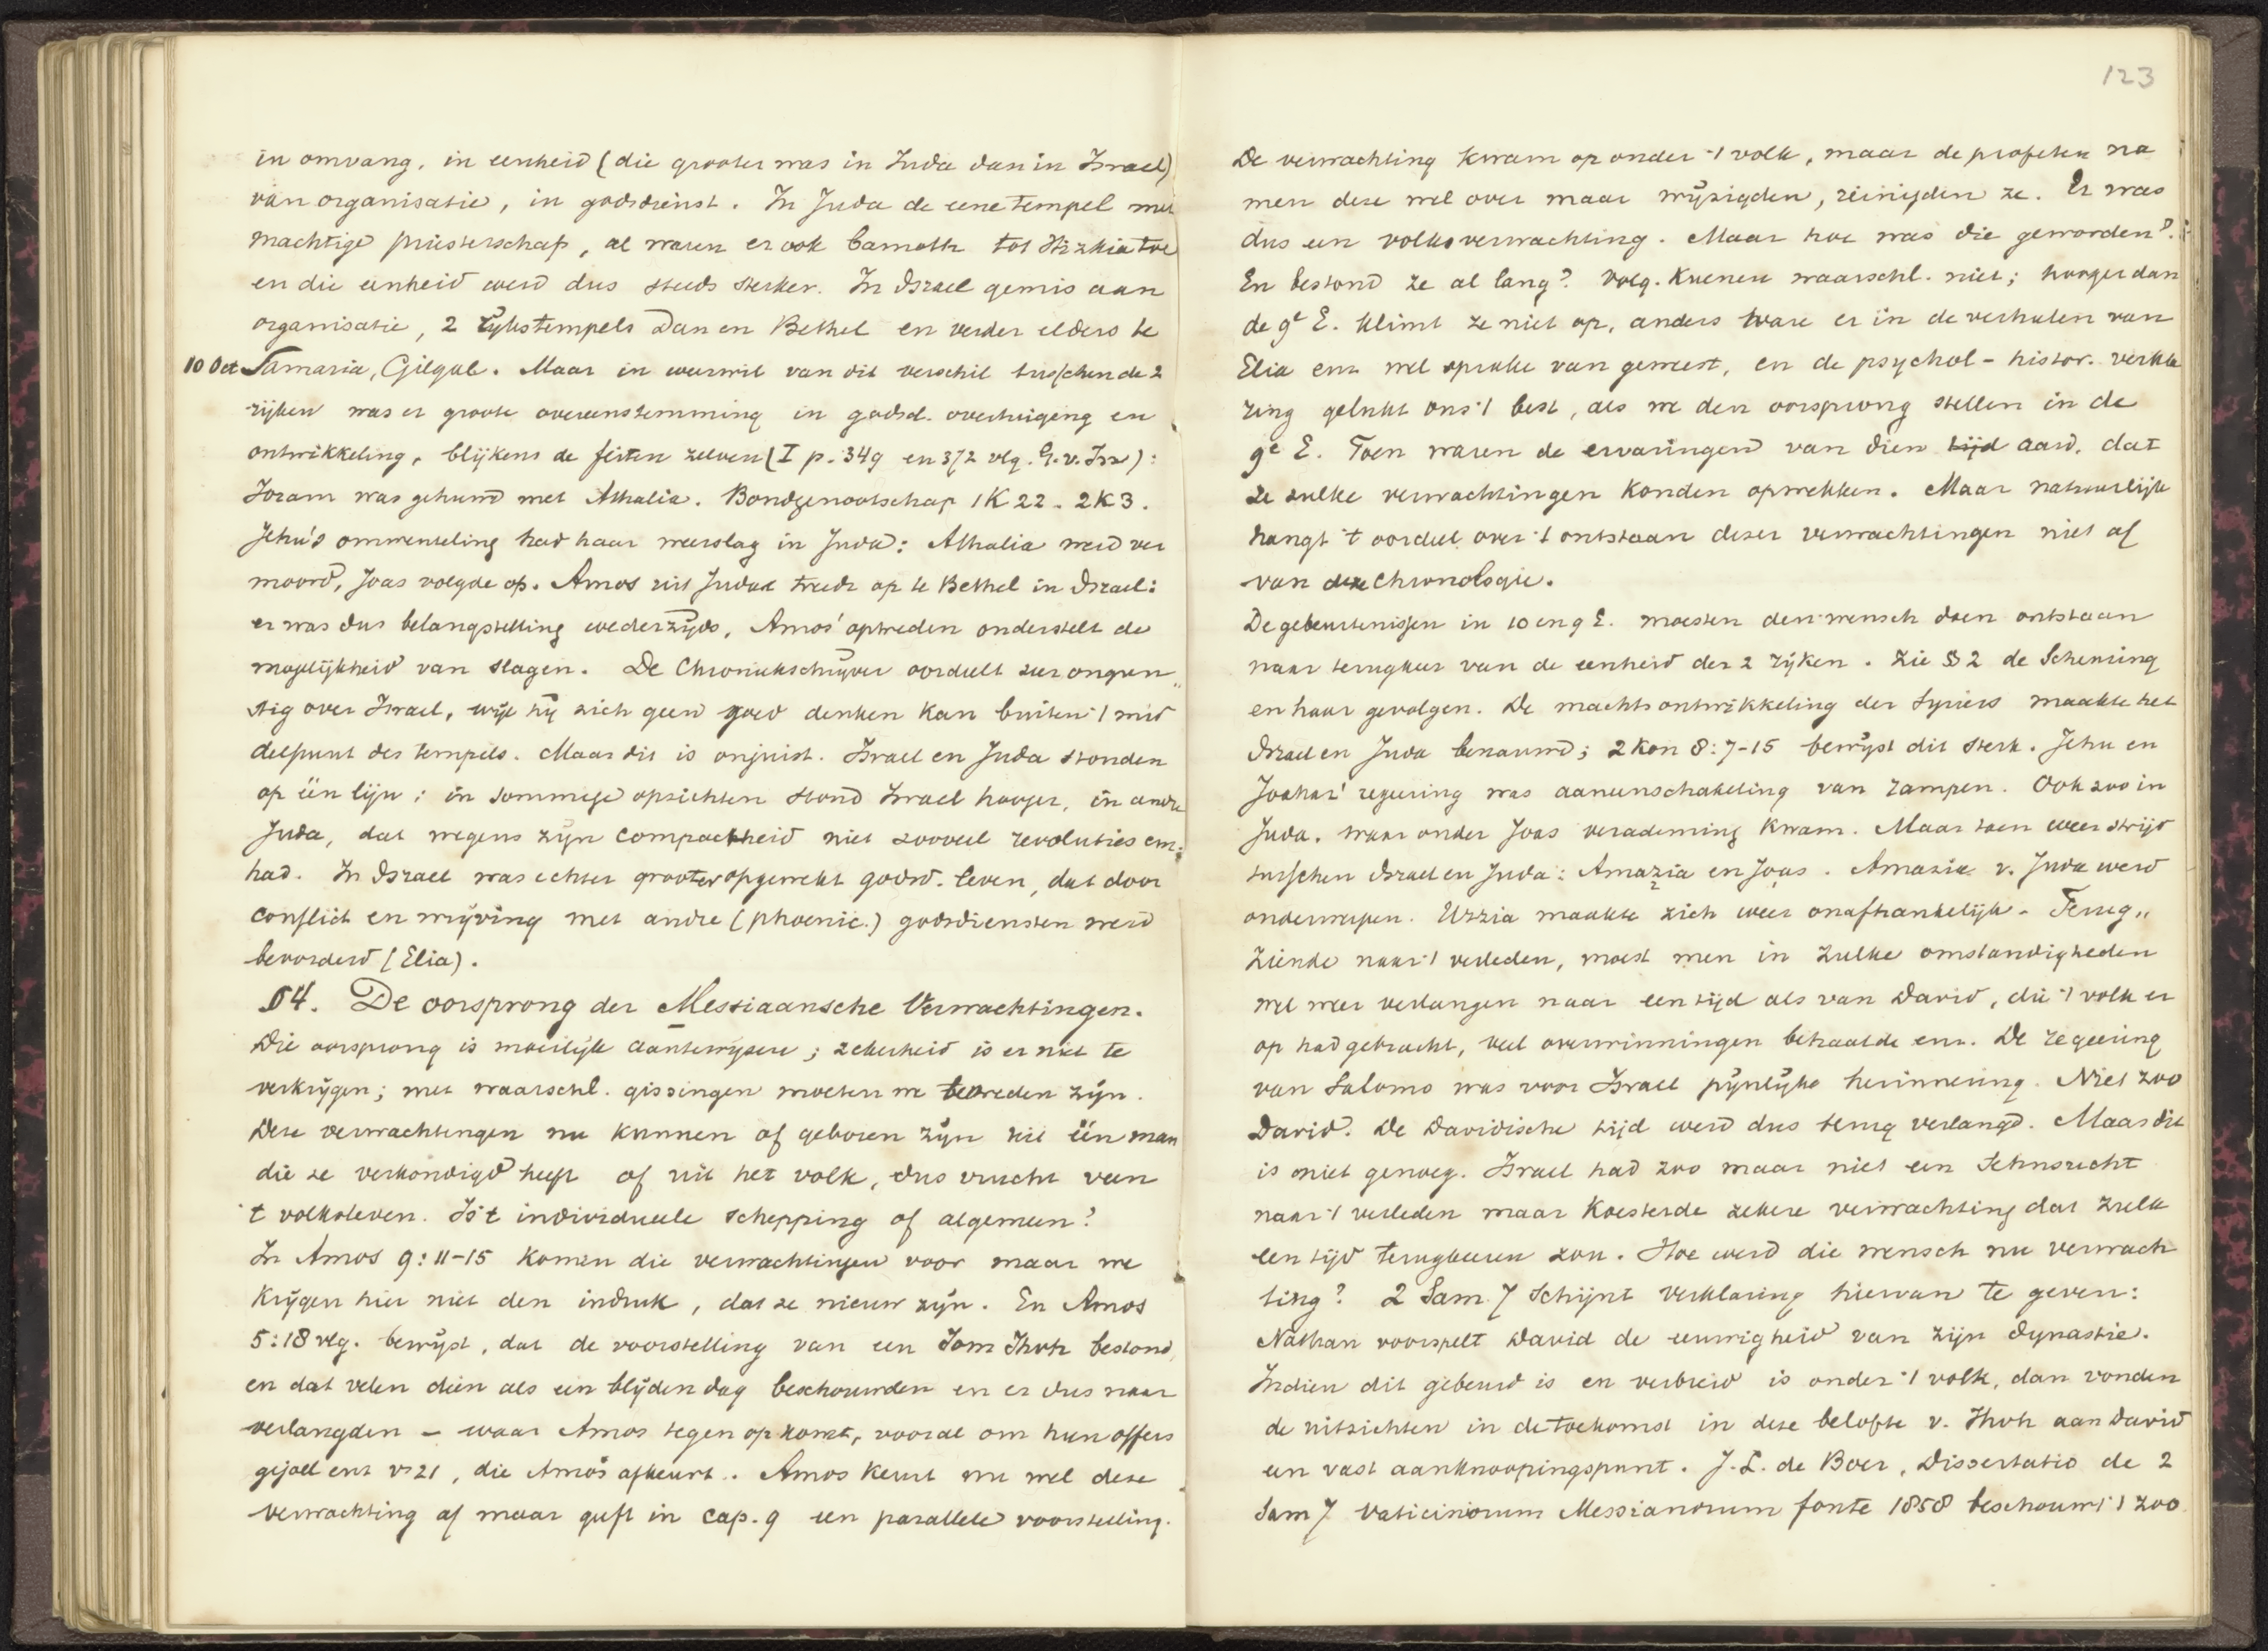 in omvang, in eenheid (die grooter was in Juda dan in Israel)
van organisatie, in godsdienst. In Juda de eene tempel met
machtige priesterschap, al waren er ook bamoth tot Hizkia toe
en die eenheid werd dus steeds sterker. In Israel gemis aan
organisatie, 2 rijkstempels Dan en Bethel en verder elders te
10 Oct Samaria, Gilgal. Maar in weerwil van dit verschil tusschen de 2
rijken was er groote overeenstemming in godsd. overtuiging en
ontwikkeling, blijkens de feiten zelven (I p. 349 en 372 vlg. G.v.Isr):
Joram was gehuwd met Athalia. Bondgenootschap 1K22. 2K3.
Jehu's omwenteling had haar weerslag in Juda: Athalia werd ver
moord, Joas volgde op. Amos uit Judea treedt op te Bethel in Israel:
er was dus belangstelling wederzijds, Amos' optreden onderstelt de
mogelijkheid van slagen. De Chroniekschrijver oordeelt zeer ongun„
stig over Israel, wijl hij zich geen goed denken kan buiten 't mid
delpunt des tempels. Maar dit is onjuist. Israel en Juda stonden
op één lijn: in sommige opzichten stond Israel hooger, in andre
Juda, dat wegens zijn compactheid niet zooveel revoluties enz.
had. In Israel was echter grooter opgewekt godsd. leven, dat door
conflict en wrijving met andre (phoenic.) godsdiensten werd
bevorderd (Elia).
§4. De oorsprong der Messiaansche Verwachtingen.
Die oorsprong is moeilijk aantewijzen; zekerheid is er niet te
verkrijgen; met waarschl. gissingen moeten we tevreden zijn.
Deze verwachtingen nu kunnen of geboren zijn uit één man
die ze verkondigd heeft of uit het volk, dus vrucht van
't volksleven. Is 't individueele schepping of algemeen?
In Amos 9:11-15 komen die verwachtingen voor maar we
krijgen hier niet den indruk, dat ze nieuw zijn. En Amos
5:18 vlg. bewijst, dat de voorstelling van een Jom Jhvh bestond,
en dat velen dien als een blijden dag beschouwden en er dus naar
verlangden – waar Amos tegen op komt, vooral om hun offers
gejoel enz vs 21, die Amos afkeurt. Amos keurt nu wel deze
verwachting af maar geeft in cap. 9 een parallele voorstelling.
123
De verwachting kwam op onder 't volk, maar de profeten na
men deze wel over maar wijzigden, reinigden ze. Er was
dus een volksverwachting. Maar hoe was die geworden?
En bestond ze al lang? Volg. Kuenen waarschl. niet; hooger dan
de 9e E. klimt ze niet op, anders ware er in de verhalen van
Elia enz wel sprake van geweest, en de psychol-histor. verkla
ring gelukt ons 't best, als we den oorsprong stellen in de
9e E. Toen waren de ervaringen van dien tijd aard, dat
ze zulke verwachtingen konden opwekken. Maar natuurlijk
hangt 't oordeel over 't ontstaan dezer verwachtingen niet af
van deze chronologie.
De gebeurtenissen in 10 en 9 E. moesten den wensch doen ontstaan
naar terugkeer van de eenheid der 2 rijken. Zie §2 de Scheuring
en haar gevolgen. De machtsontwikkeling der Syriers maakte het
Israel en Juda benauwd; 2 Kon 8:7-15 bewijst dit sterk. Jehu en
Joahas' regeering was aaneenschakeling van rampen. Ook zoo in
Juda. waar onder Joas verademing kwam. Maar toen weer strijd
tusschen Israel en Juda: Amazia en Joas. Amazia v. Juda werd
onderworpen. Uzzia maakte zich weer onafhankelijk. Terug„
ziende naar 't verleden, moest men in zulke omstandigheden
wel weer verlangen naar een tijd als van David, die 't volk er
op had gebracht, veel overwinningen behaalde enz. De regeering
van Salomo was voor Israel pijnlijke herinnering. Niet zoo
David. De Davidische tijd werd dus terug verlangd. Maar dit
is niet genoeg. Israel had zoo maar niet een Sehnsucht
naar 't verleden maar koesterde zekere verwachting dat zulk
een tijd terugkeeren zou. Hoe werd die wensch nu verwach
ting? 2 Sam. 7 schijnt verklaring hiervan te geven:
Nathan voorspelt David de eeuwigheid van zijn dynastie.
Indien dit gebeurd is en verbreid is onder 't volk, dan vonden
de uitzichten in de toekomst in deze belofte v. Jhvh aan David
een vast aanknoopingspunt. J.L. de Boer, Dissertatio de 2
Sam 7 vaticiniorum Messianorum fonte 1858 beschouwt 't zoo